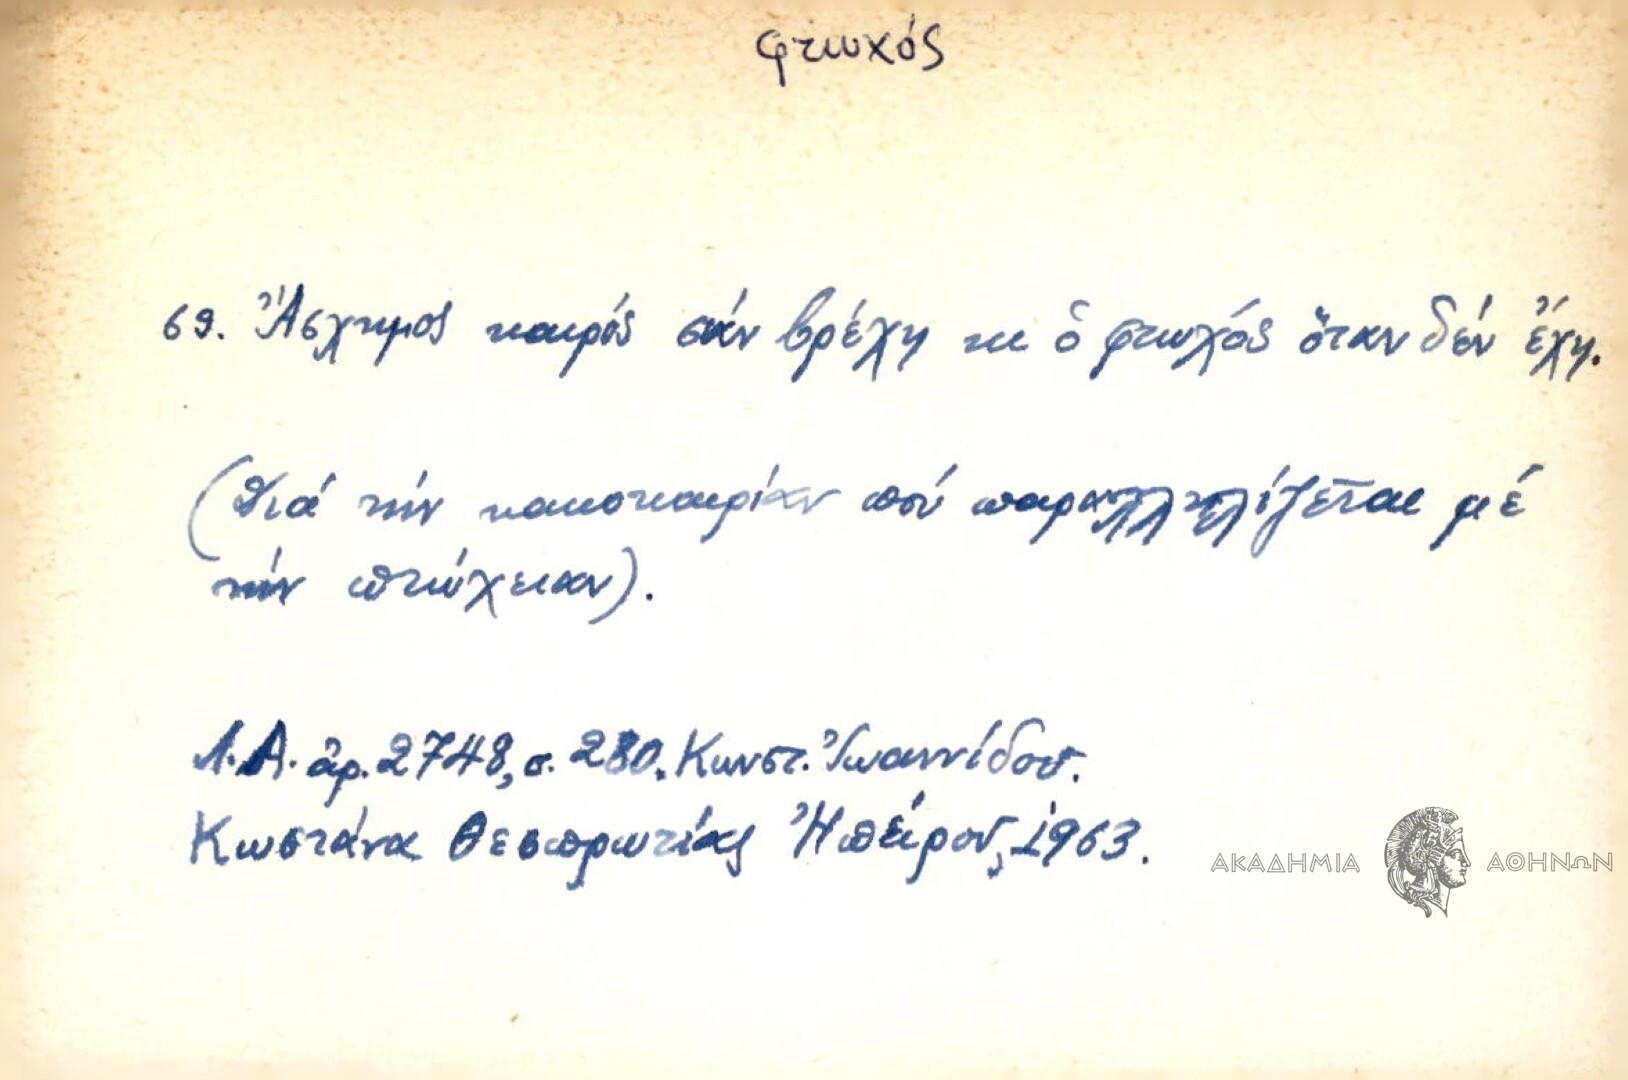 φτωχός
69. Ἄσχημος καιρός σάν βρέχῃ κι ὁ φτωχός ὅταν δέν ἔχῃ.
(Διά τήν κακοκαιρίαν πού παραλληλίζεται μέ
τήν πτώχειαν).
Λ.Α. ἀρ. 2748, σ. 280. Κωνστ. Ἰωαννίδου.
Κωστάνα Θεσπρωτίας Ἠπείρου, 1963.
ΑΚΑΔΗΜΙΑ ΑΘΗΝΩΝ